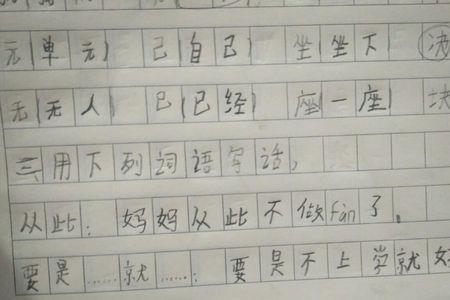 元(单元) 己(自己) 坐(坐下) (决
无(无人) 已(已经) 座(一座) 块
三用下列词语写话,
从此：妈妈从此不做fàn了。
要是……就……：要是不上学就好